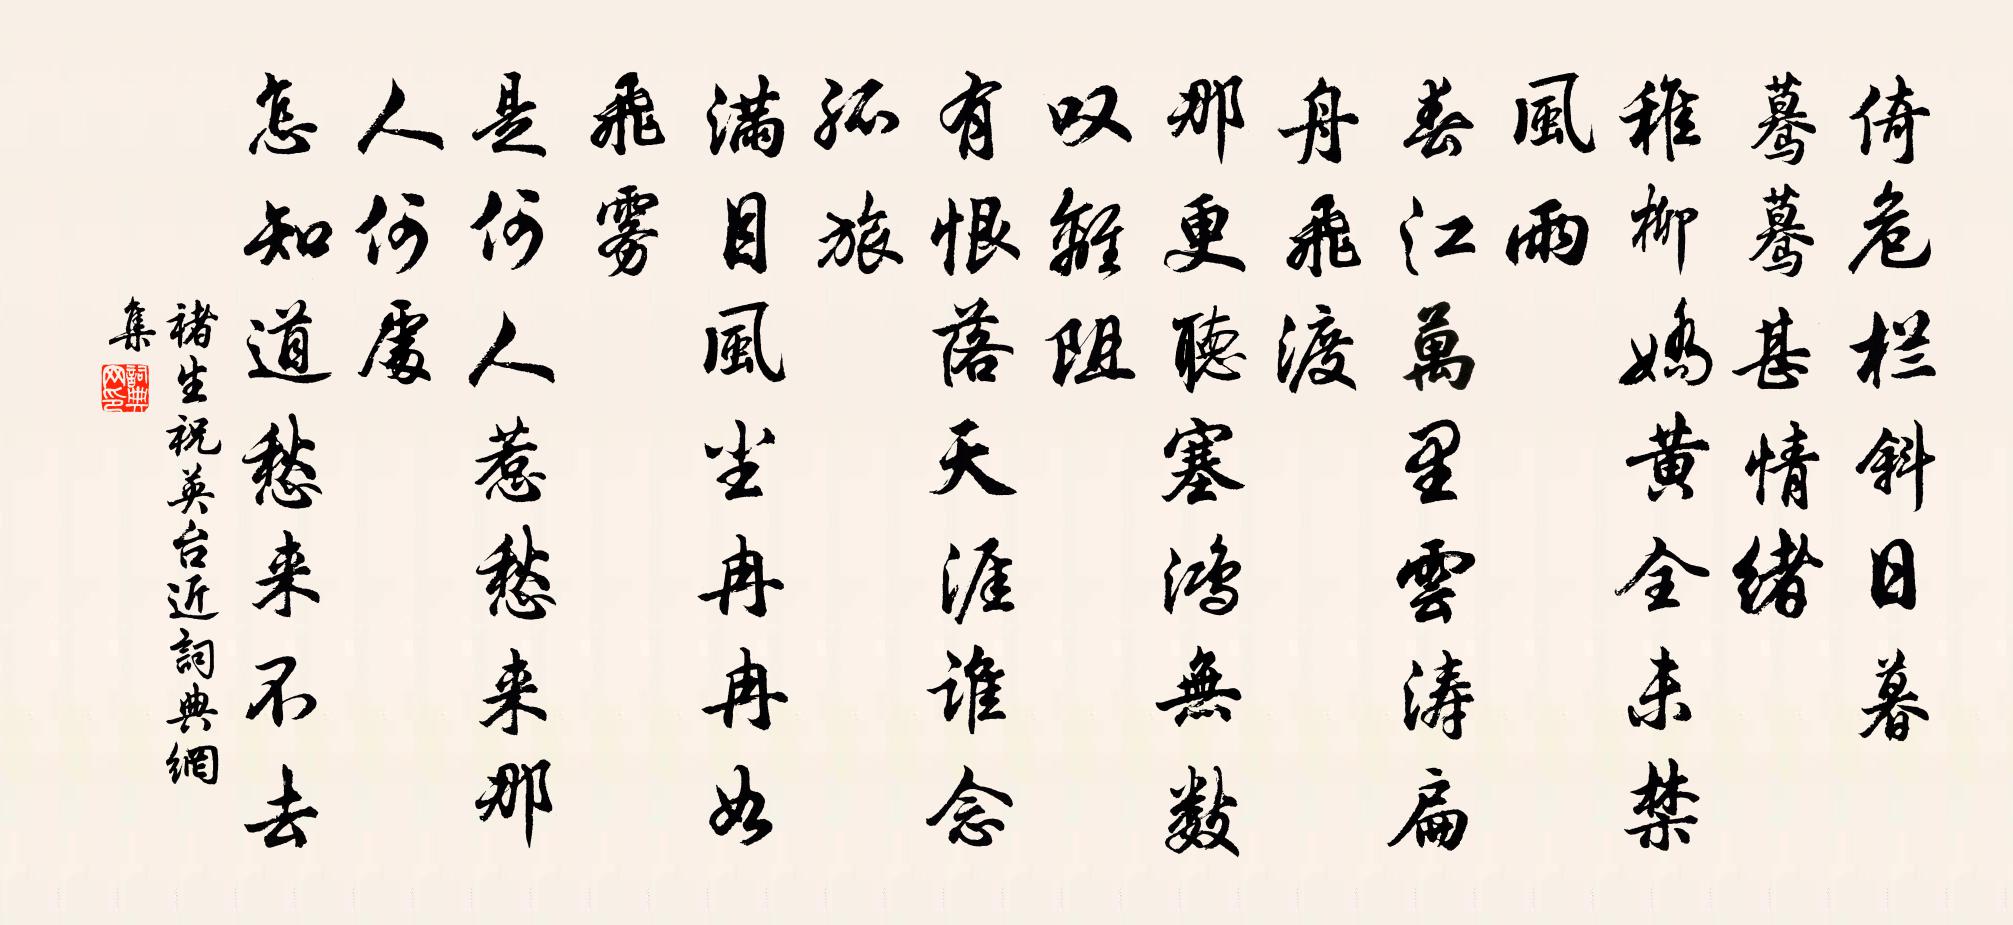 倚危栏斜日暮
驀驀甚情緒
稚柳嬌黄全未禁
風雨
春江萬里雲涛扁
舟飛渡
那更聽塞鴻無數
叹離阻
有恨落天涯谁念
孤旅
满目風尘冉冉如
飛雾
是何人惹愁来那
人何處
怎知道愁来不去
褚生祝英台近詞典網
集
詞典网印